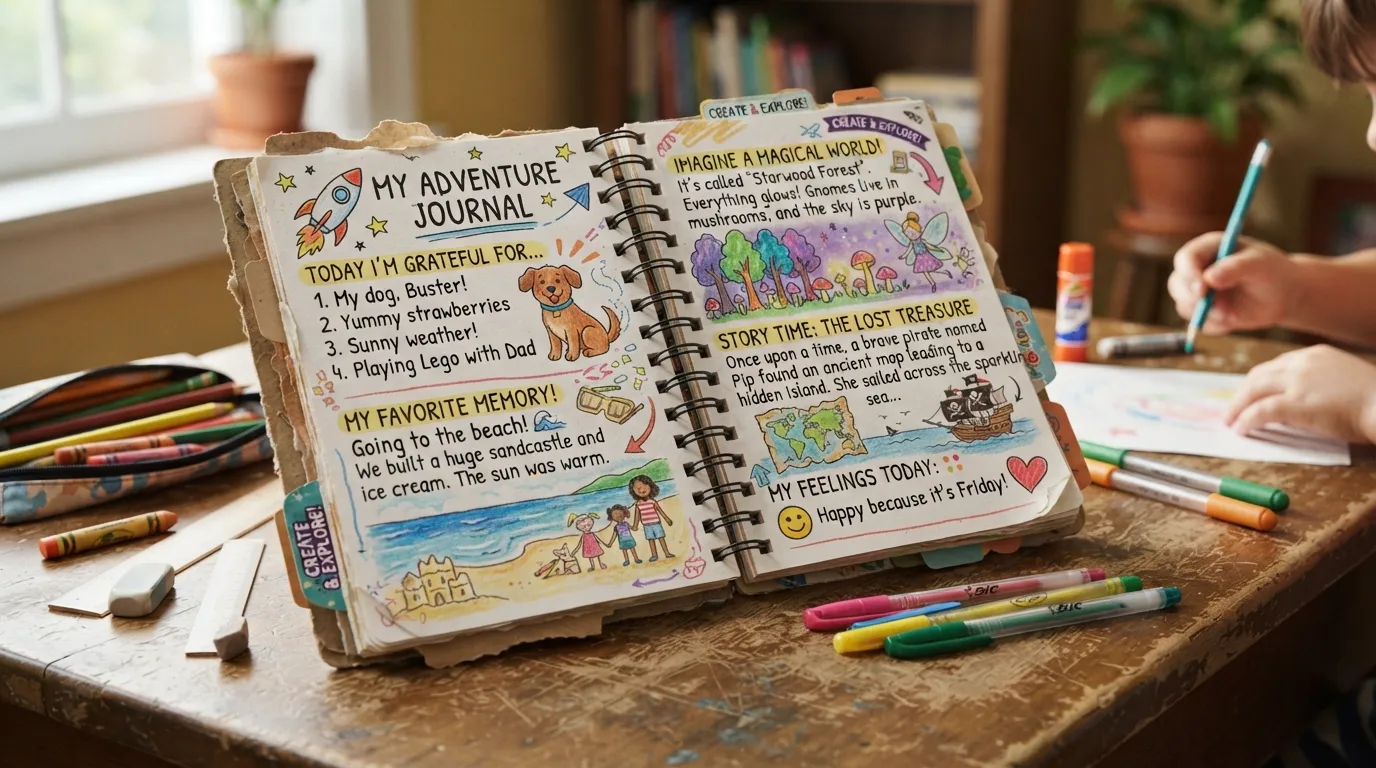 MY ADVENTURE
JOURNAL
TODAY I'M GRATEFUL FOR...
1. My dog, Buster!
2. Yummy strawberries
3. Sunny weather!
4. Playing Lego with Dad
MY FAVORITE MEMORY!
Going to the beach!
We built a huge sandcastle and
ice cream. The sun was warm.
CREATE
& EXPLORE!
CREATE & EXPLORE!
CREATE & EXPLORE!
IMAGINE A MAGICAL WORLD!
It's called "Starwood Forest".
Everything glows! Gnomes live in
mushrooms, and the sky is purple.
STORY TIME: THE LOST TREASURE
Once upon a time, a brave pirate named
Pip found an ancient map leading to a
hidden Island. She sailed across the sparklin
sea...
MY FEELINGS TODAY:
Happy because it's Friday!
BIC
BIC